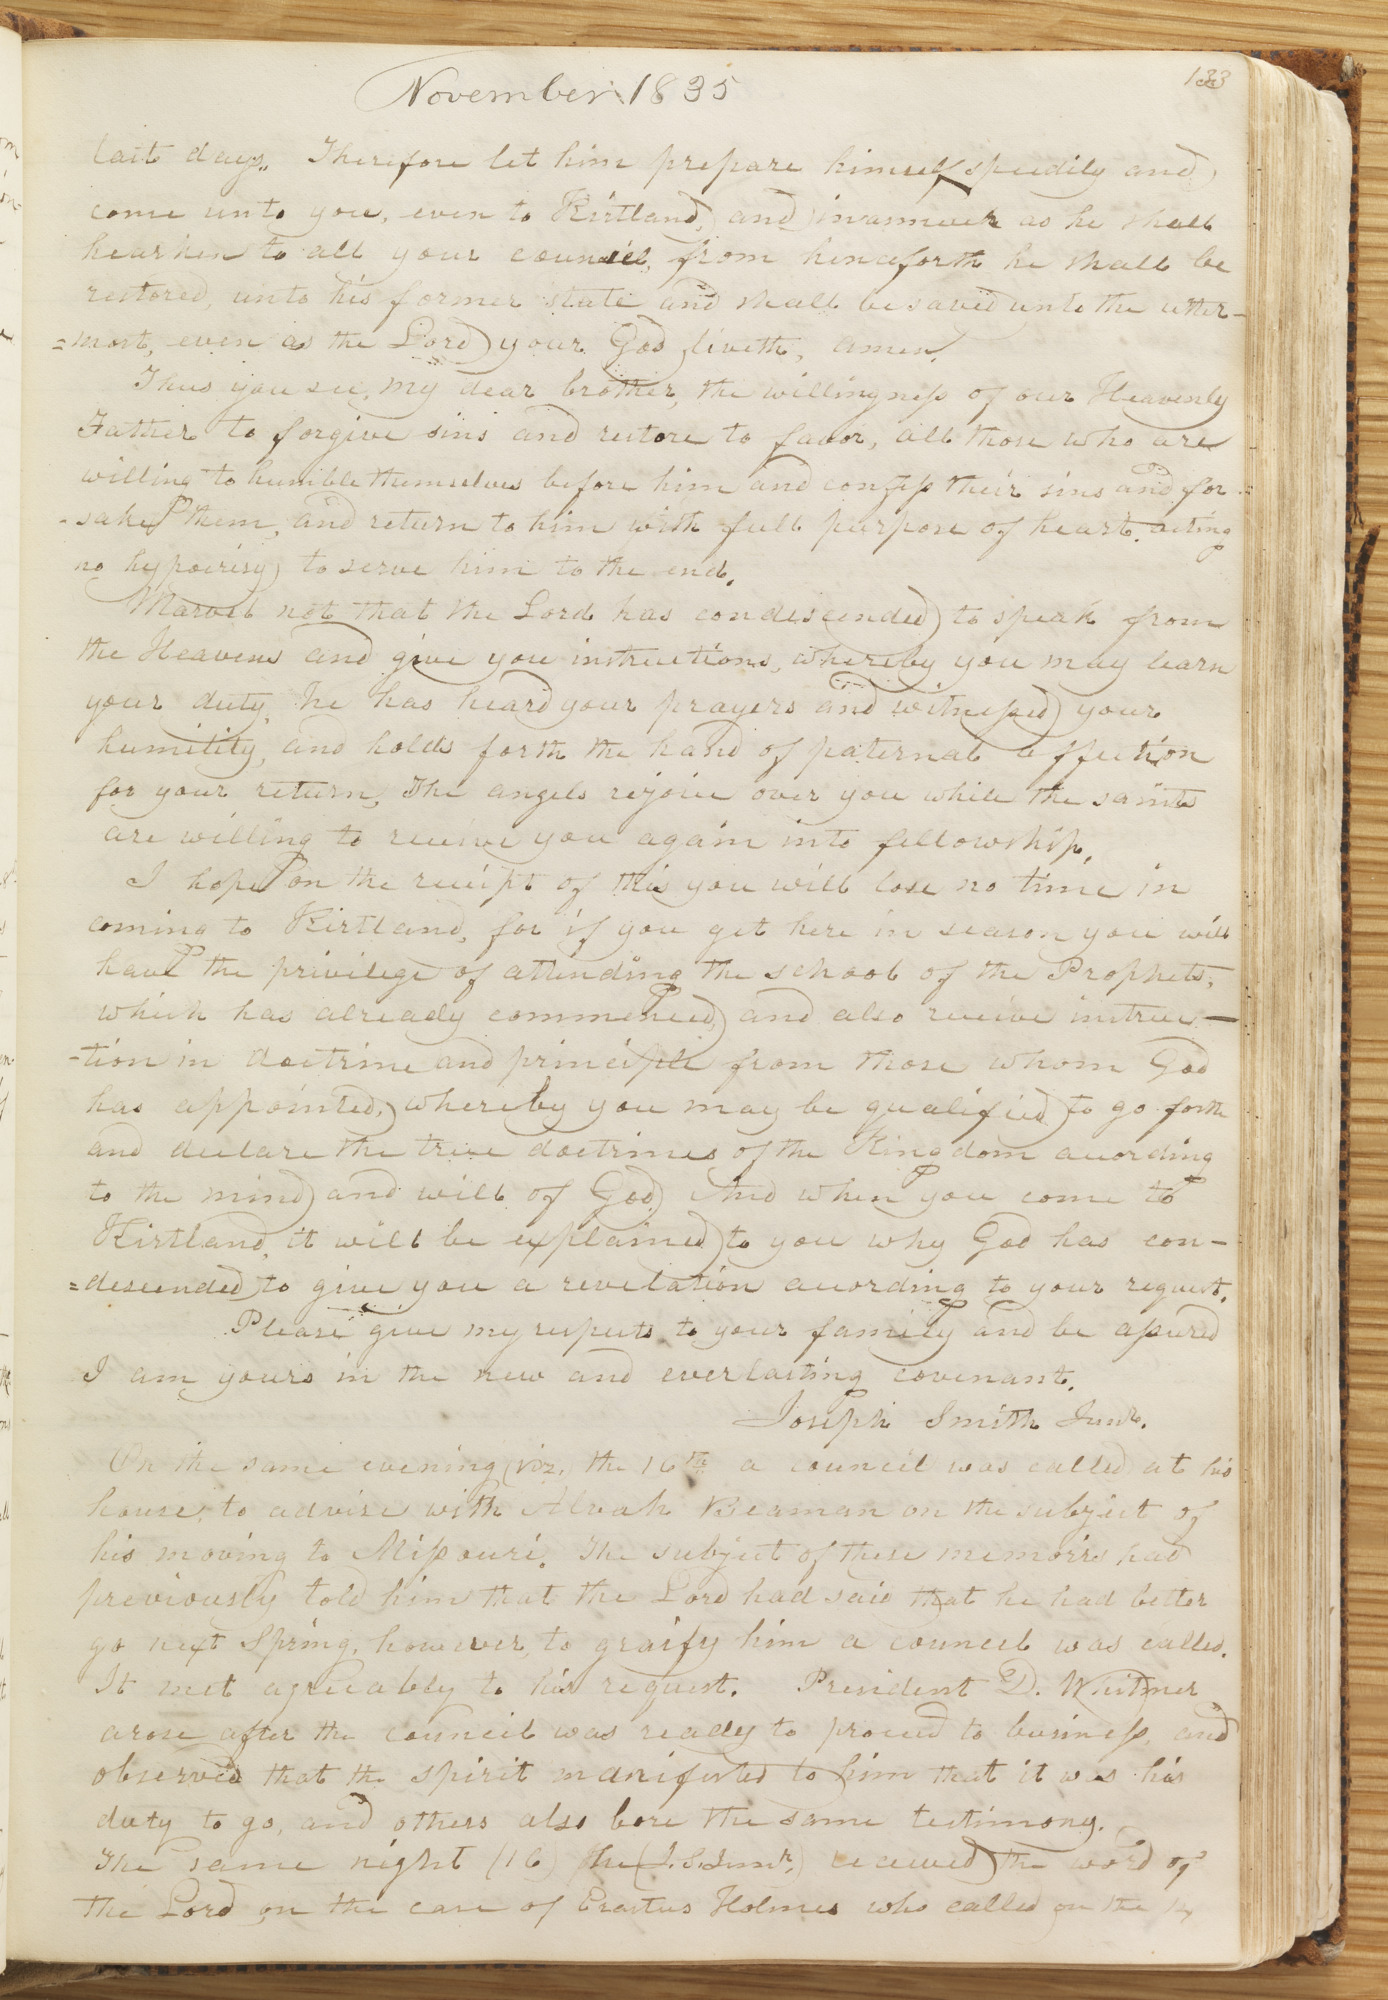 November 1835
133
last days. Therefore let him prepare himself speedily and
come unto you, even to Kirtland, and inasmuch as he shall
hearken to all your council, from henceforth he shall be
restored, unto his former state and shall be saved unto the utter-
=most, even as the Lord your God liveth, amen.
Thus you see, my dear brother, the willingness of our Heavenly
Father to forgive sins and restore to favor, all those who are
willing to humble themselves before him and confess their sins and for-
-sake them, and return to him with full purpose of heart, acting
no hypocrisy, to serve him to the end.
Marvel not that the Lord has condescended to speak from
the Heavens and give you instructions, whereby you may learn
your duty, he has heard your prayers and witnessed your
humility, and holds forth the hand of paternal affection
for your return, The angels rejoice over you while the saints
are willing to receive you again into fellowship.
I hope on the receipt of this you will lose no time in
coming to Kirtland, for if you get here in season you will
have the privilege of attending the school of the Prophets,
which has already commenced, and also receive instruc-
-tion in doctrine and principle from those whom God
has appointed, whereby you may be qualified to go forth
and declare the true doctrines of the Kingdom acording
to the mind and will of God. And when you come to
Kirtland, it will be explained to you why God has con-
=descended to give you a revelation acording to your request.
Please give my respects to your family and be assured
I am yours in the new and everlasting covenant.
Joseph Smith Junr.
On the same evening (viz. the 16th a council was called at his
house, to advise with Alvah Beaman on the subject of
his moving to Missouri. The subject of these memoirs had
previously told him that the Lord had said that he had better
go next Spring, however, to graify him a council was called.
It met agreeably to his request. President D. Whitmer
arose after the council was ready to proceed to business, and
observed that the spirit manifested to him that it was his
duty to go, and others also bore the same testimony.
The same night (16) he (J. S. Junr,) received the word of
the Lord on the case of Erastus Holmes who called on the 14,